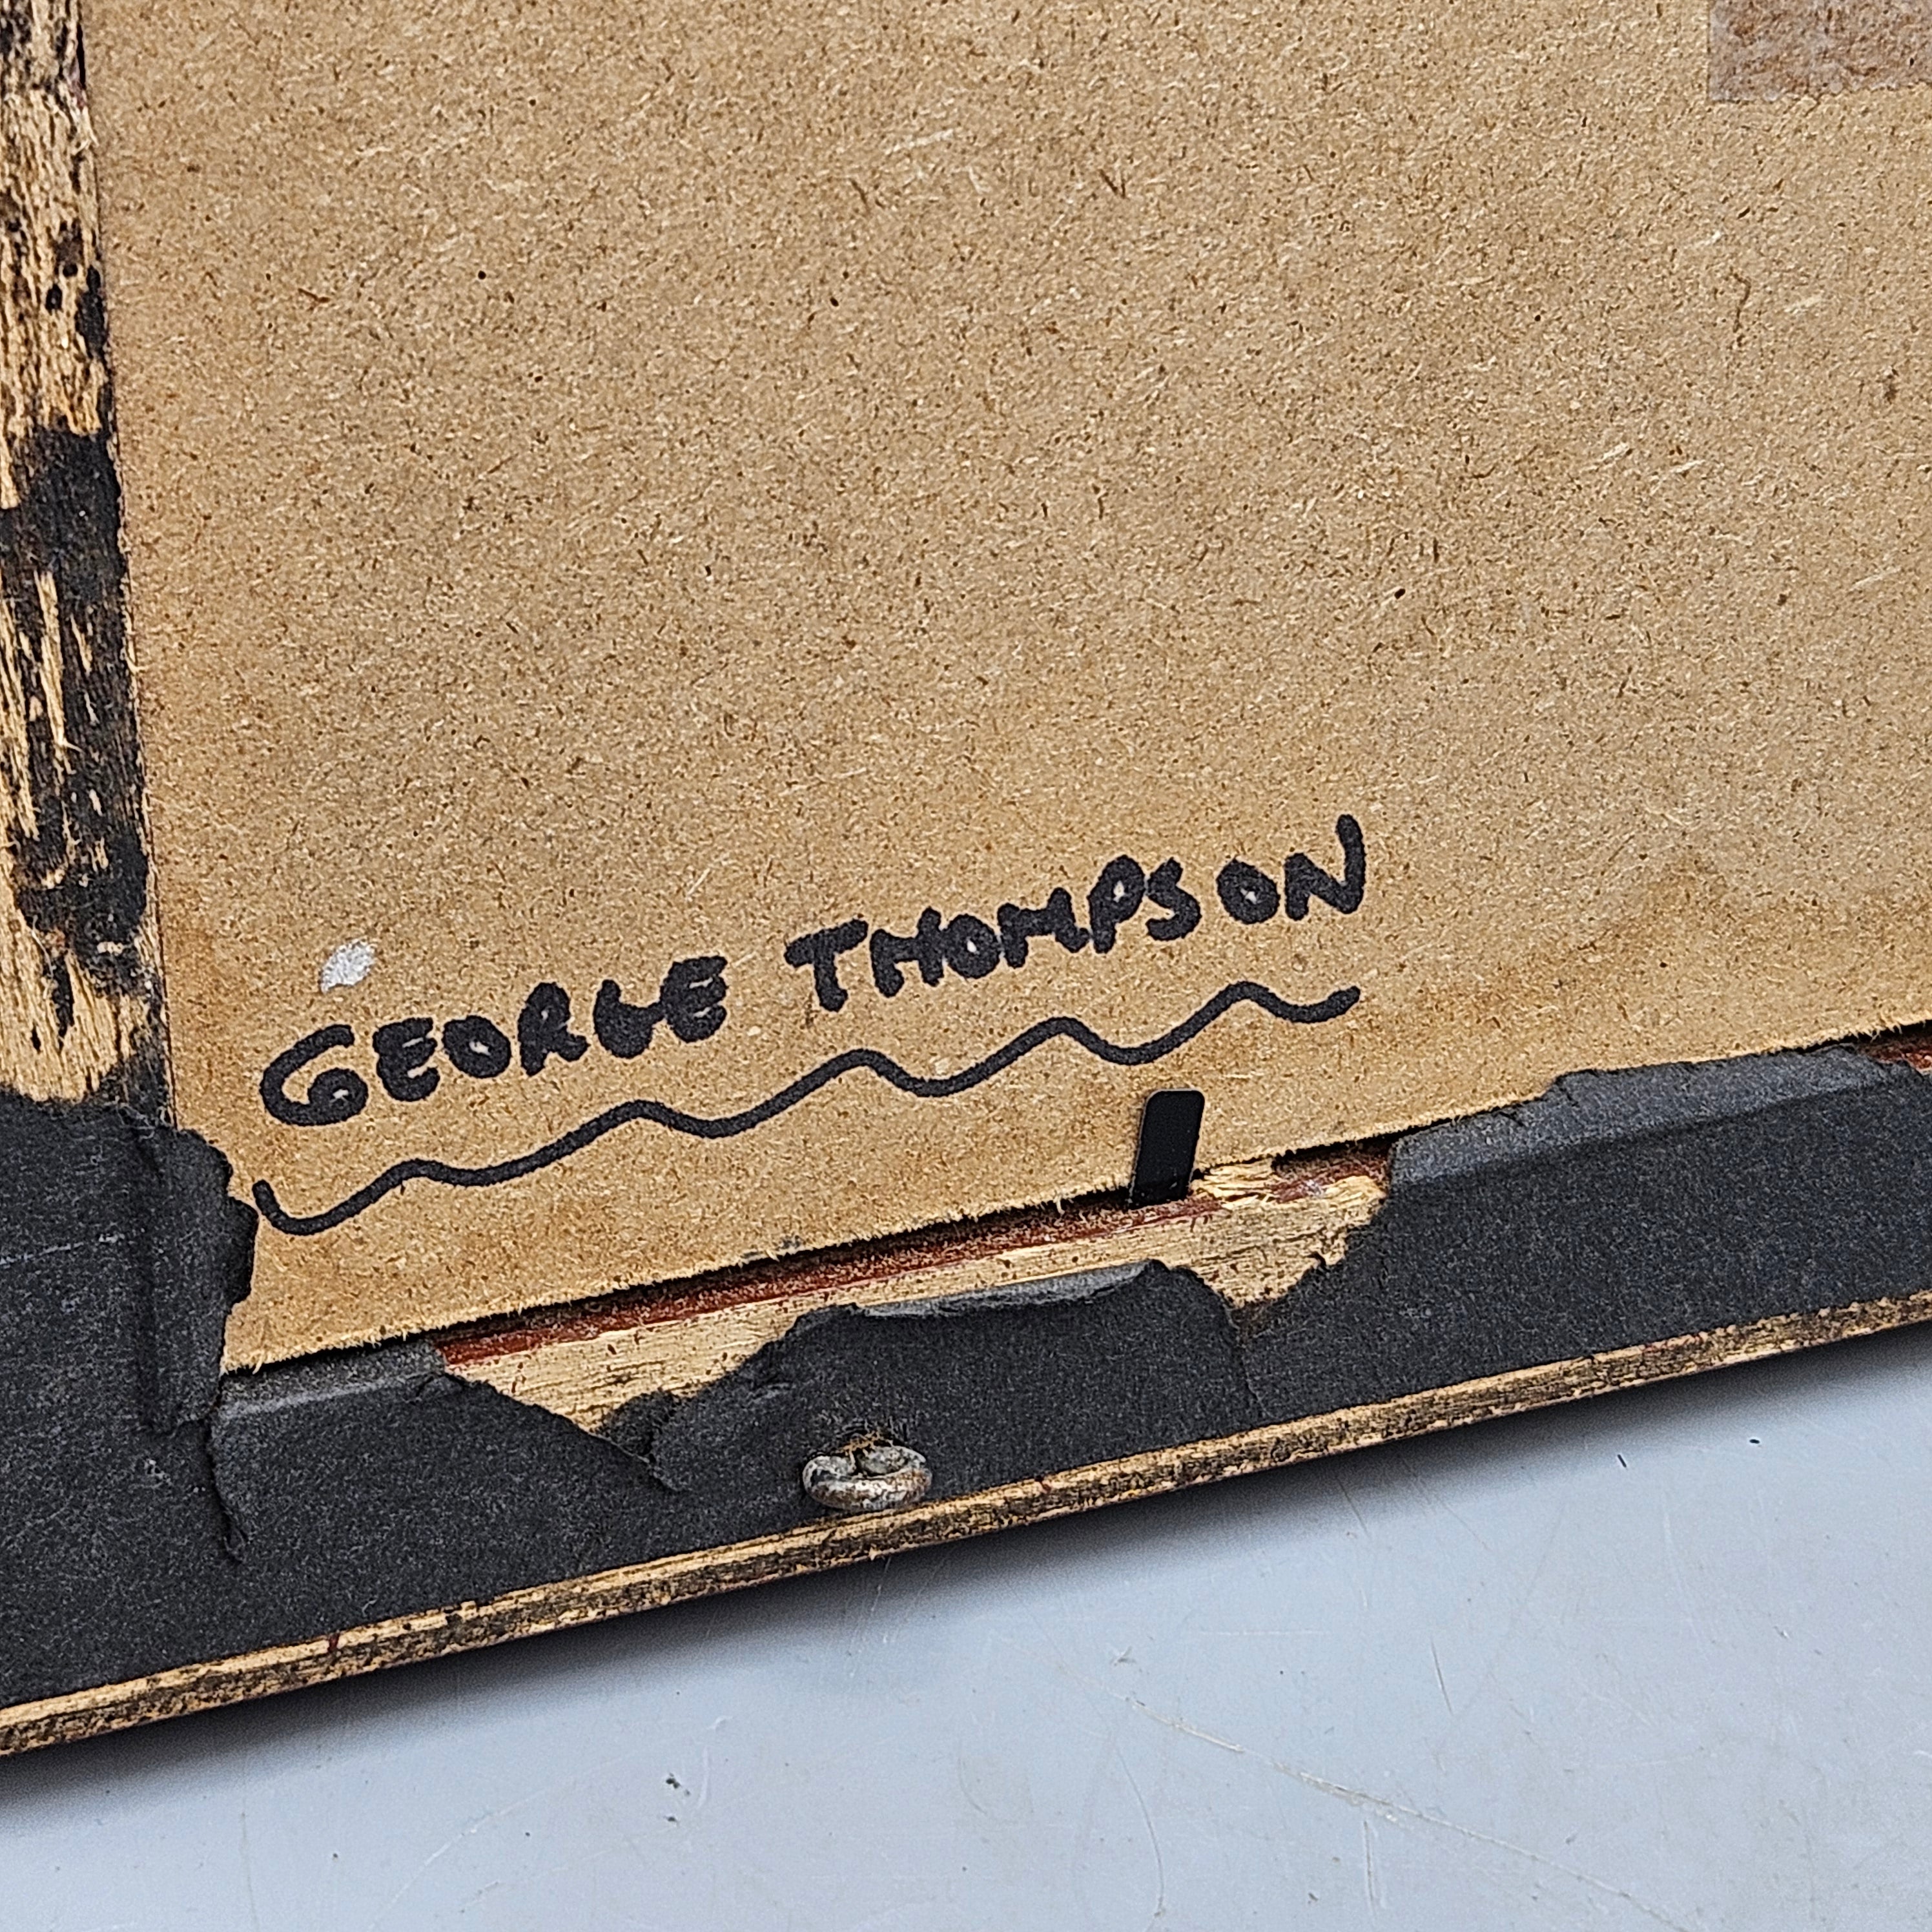 GEORGE THOMPSON